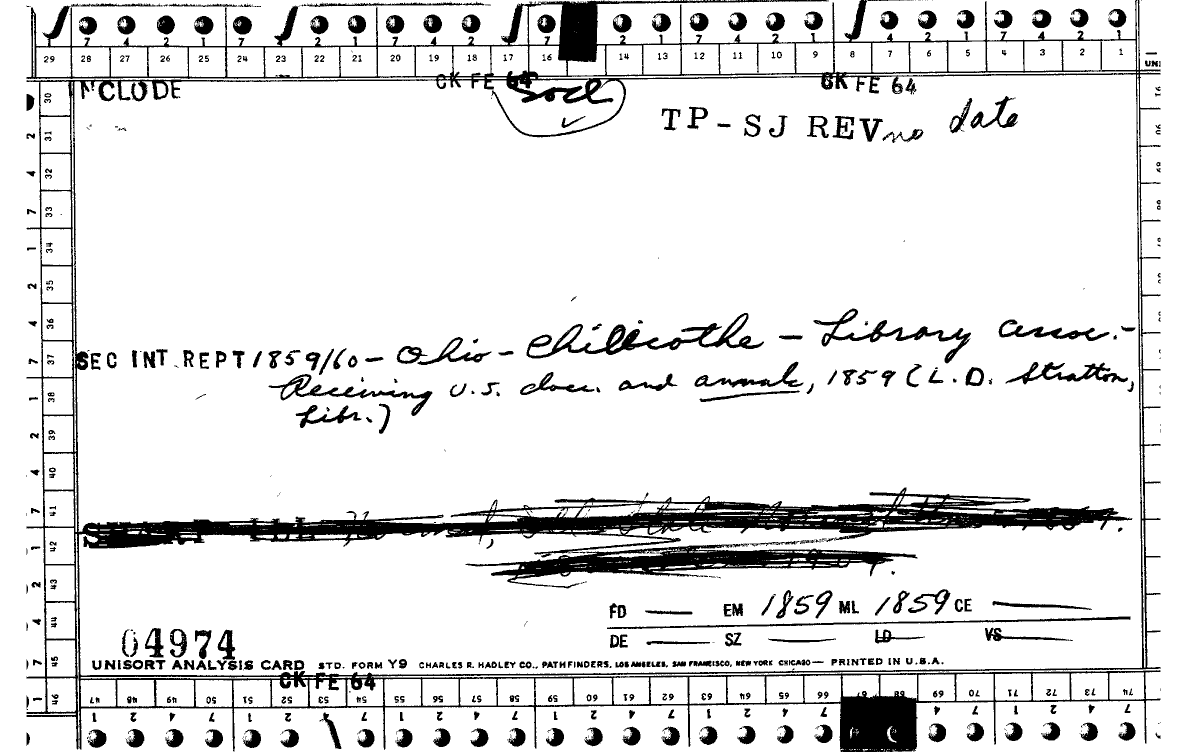 7 4 2 1 7 2 1 7 4 2 1 7 2 1 7 4 2 1 7 4 2 1
29 28 27 26 25 24 23 22 21 20 19 18 17 16 14 13 12 11 10 9 8 7 6 5 4 3 2 1
CK FE 64 CK FE 64
NCLODE Socl
TP-SJ REV no date
SEC INT. REPT 1859/60 – Ohio – Chillicothe – Library Assoc. –
Receiving U.S. docs. and annals, 1859 (L.D. Stratton,
Libr.)
FD — EM 1859 ML 1859 CE —
DE — SZ — LD — VS —
04974
UNISORT ANALYSIS CARD STD. FORM Y9 CHARLES R. HADLEY CO., PATHFINDERS, LOS ANGELES, SAN FRANCISCO, NEW YORK CHICAGO — PRINTED IN U.S.A.
CK FE 64
30 31 32 33 34 35 36 37 38 39 40 41 42 43 44 45 46
47 48 49 50 51 52 53 54 55 56 57 58 59 60 61 62 63 64 65 66 67 68 69 70 71 72 73 74